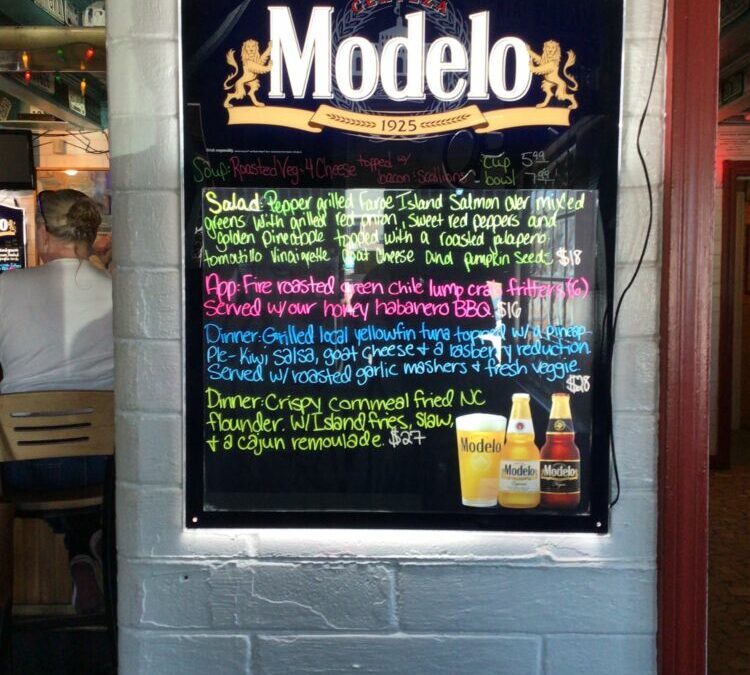 CERVEZA
Modelo
1925
Soup: Roasted Veg-4 Cheese topped w/ cup 5.99
bacon + scallions bowl 7.99
Salad: Pepper grilled Faroe Island Salmon over mixed
greens with grilled red onion, sweet red peppers and
golden pineapple topped with a roasted jalapeno
tomatillo vinaigrette goat cheese and pumpkin seeds $18
App: Fire roasted green chile lump crab fritters (6)
Served w/our honey habanero BBQ $16
Dinner: Grilled local yellowfin tuna topped w/ a pineap-
ple-Kiwi, salsa, goat cheese + a rasberry reduction
Served w/ roasted garlic mashers + fresh veggie
$28
Dinner: Crispy cornmeal fried NC
flounder. W/Island fries, slaw,
+ a cajun remoulade. $27
Modelo
Modelo
MODELO